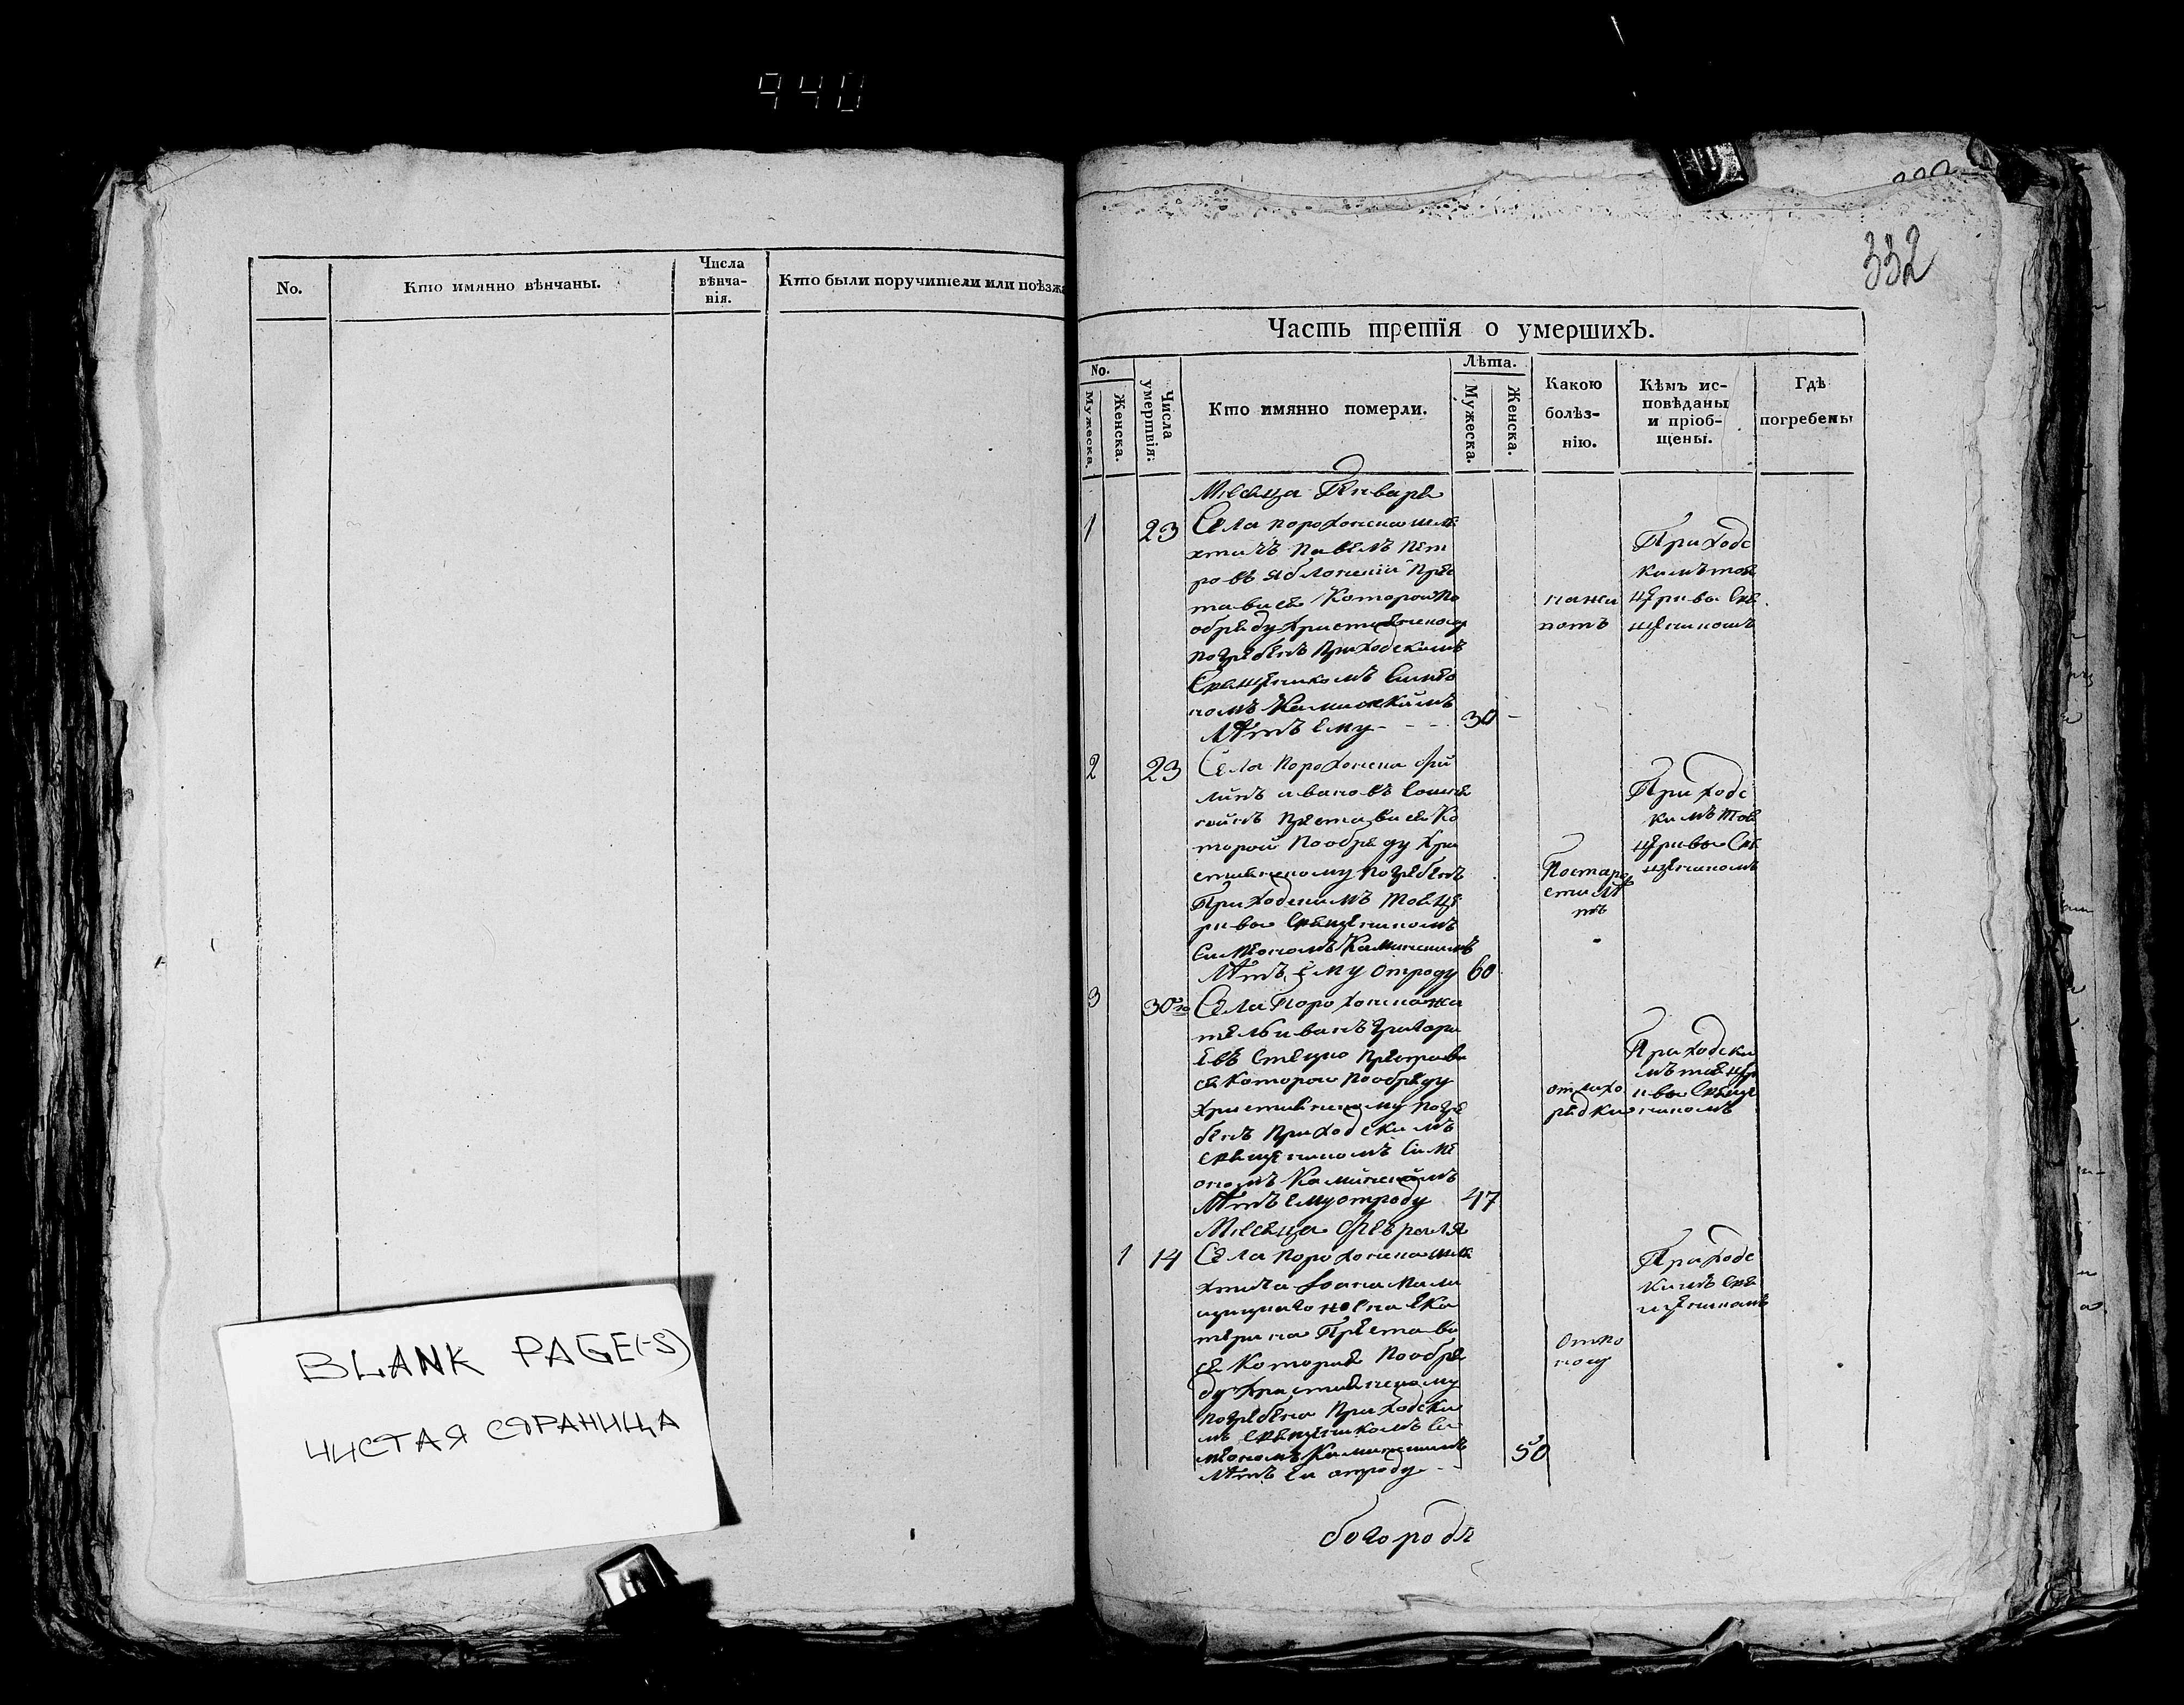 940
No.
Кто имянно вѣнчаны.
Числа
вѣнча-
нія.
Кто были поручители или поѣзжа
BLANK PAGE(-S)
ЧИСТАЯ СТРАНИЦА
332
Часть третія о умершихъ.
No.
Мужеска.
Женска.
Числа
умертвія:
Кто имянно померли.
Лѣта.
Мужеска.
Женска.
Какою
болѣз-
нію.
Кѣмъ ис-
повѣданы
и пріоб-
щены.
Гдѣ
погребены
Месяца Генваря
1 23 Села порохонска шля
хтичъ павелъ пет
ровъ яблонскій пре
ставися Которой по
обряду христианскому
погребенъ приходскимъ
Священикомъ Симео
номъ Каминскимъ
лѣтъ ему 30
Приходс
кимъ тоя
церкви Свя
щеникомъ
2 23 Села порохонска фи
липъ ивановъ
преставися Ко
торой по обряду хри
стианскому погребенъ
Приходскимъ тоя це
ркви Священикомъ
Симеономъ Каминскимъ
лѣтъ ему отроду 60
По старо
сти лѣ
тъ
Приходс
кимъ тоя
церкви Свя
щеникомъ
3 30го Села Порохонска жи
тель иванъ григори
евъ Стецко престави
ся Которой по обряду
христианскому погре
бенъ приходскимъ
священикомъ Симе
ономъ Каминскимъ
лѣтъ ему отроду 47
отлихо
радки
Приходски
мъ тоя цер
кви Свяще
никомъ
Месяца Февраля
1 14 Села порохонска шля
хтича
жена Ека
терина Престави
ся Которая по обря
ду христианскому
погребена приходски
мъ священикомъ Си
меономъ Каминскимъ
лѣтъ ей отроду 50
Отпо
носу
Приходс
кимъ свя
щеникомъ
богородъ